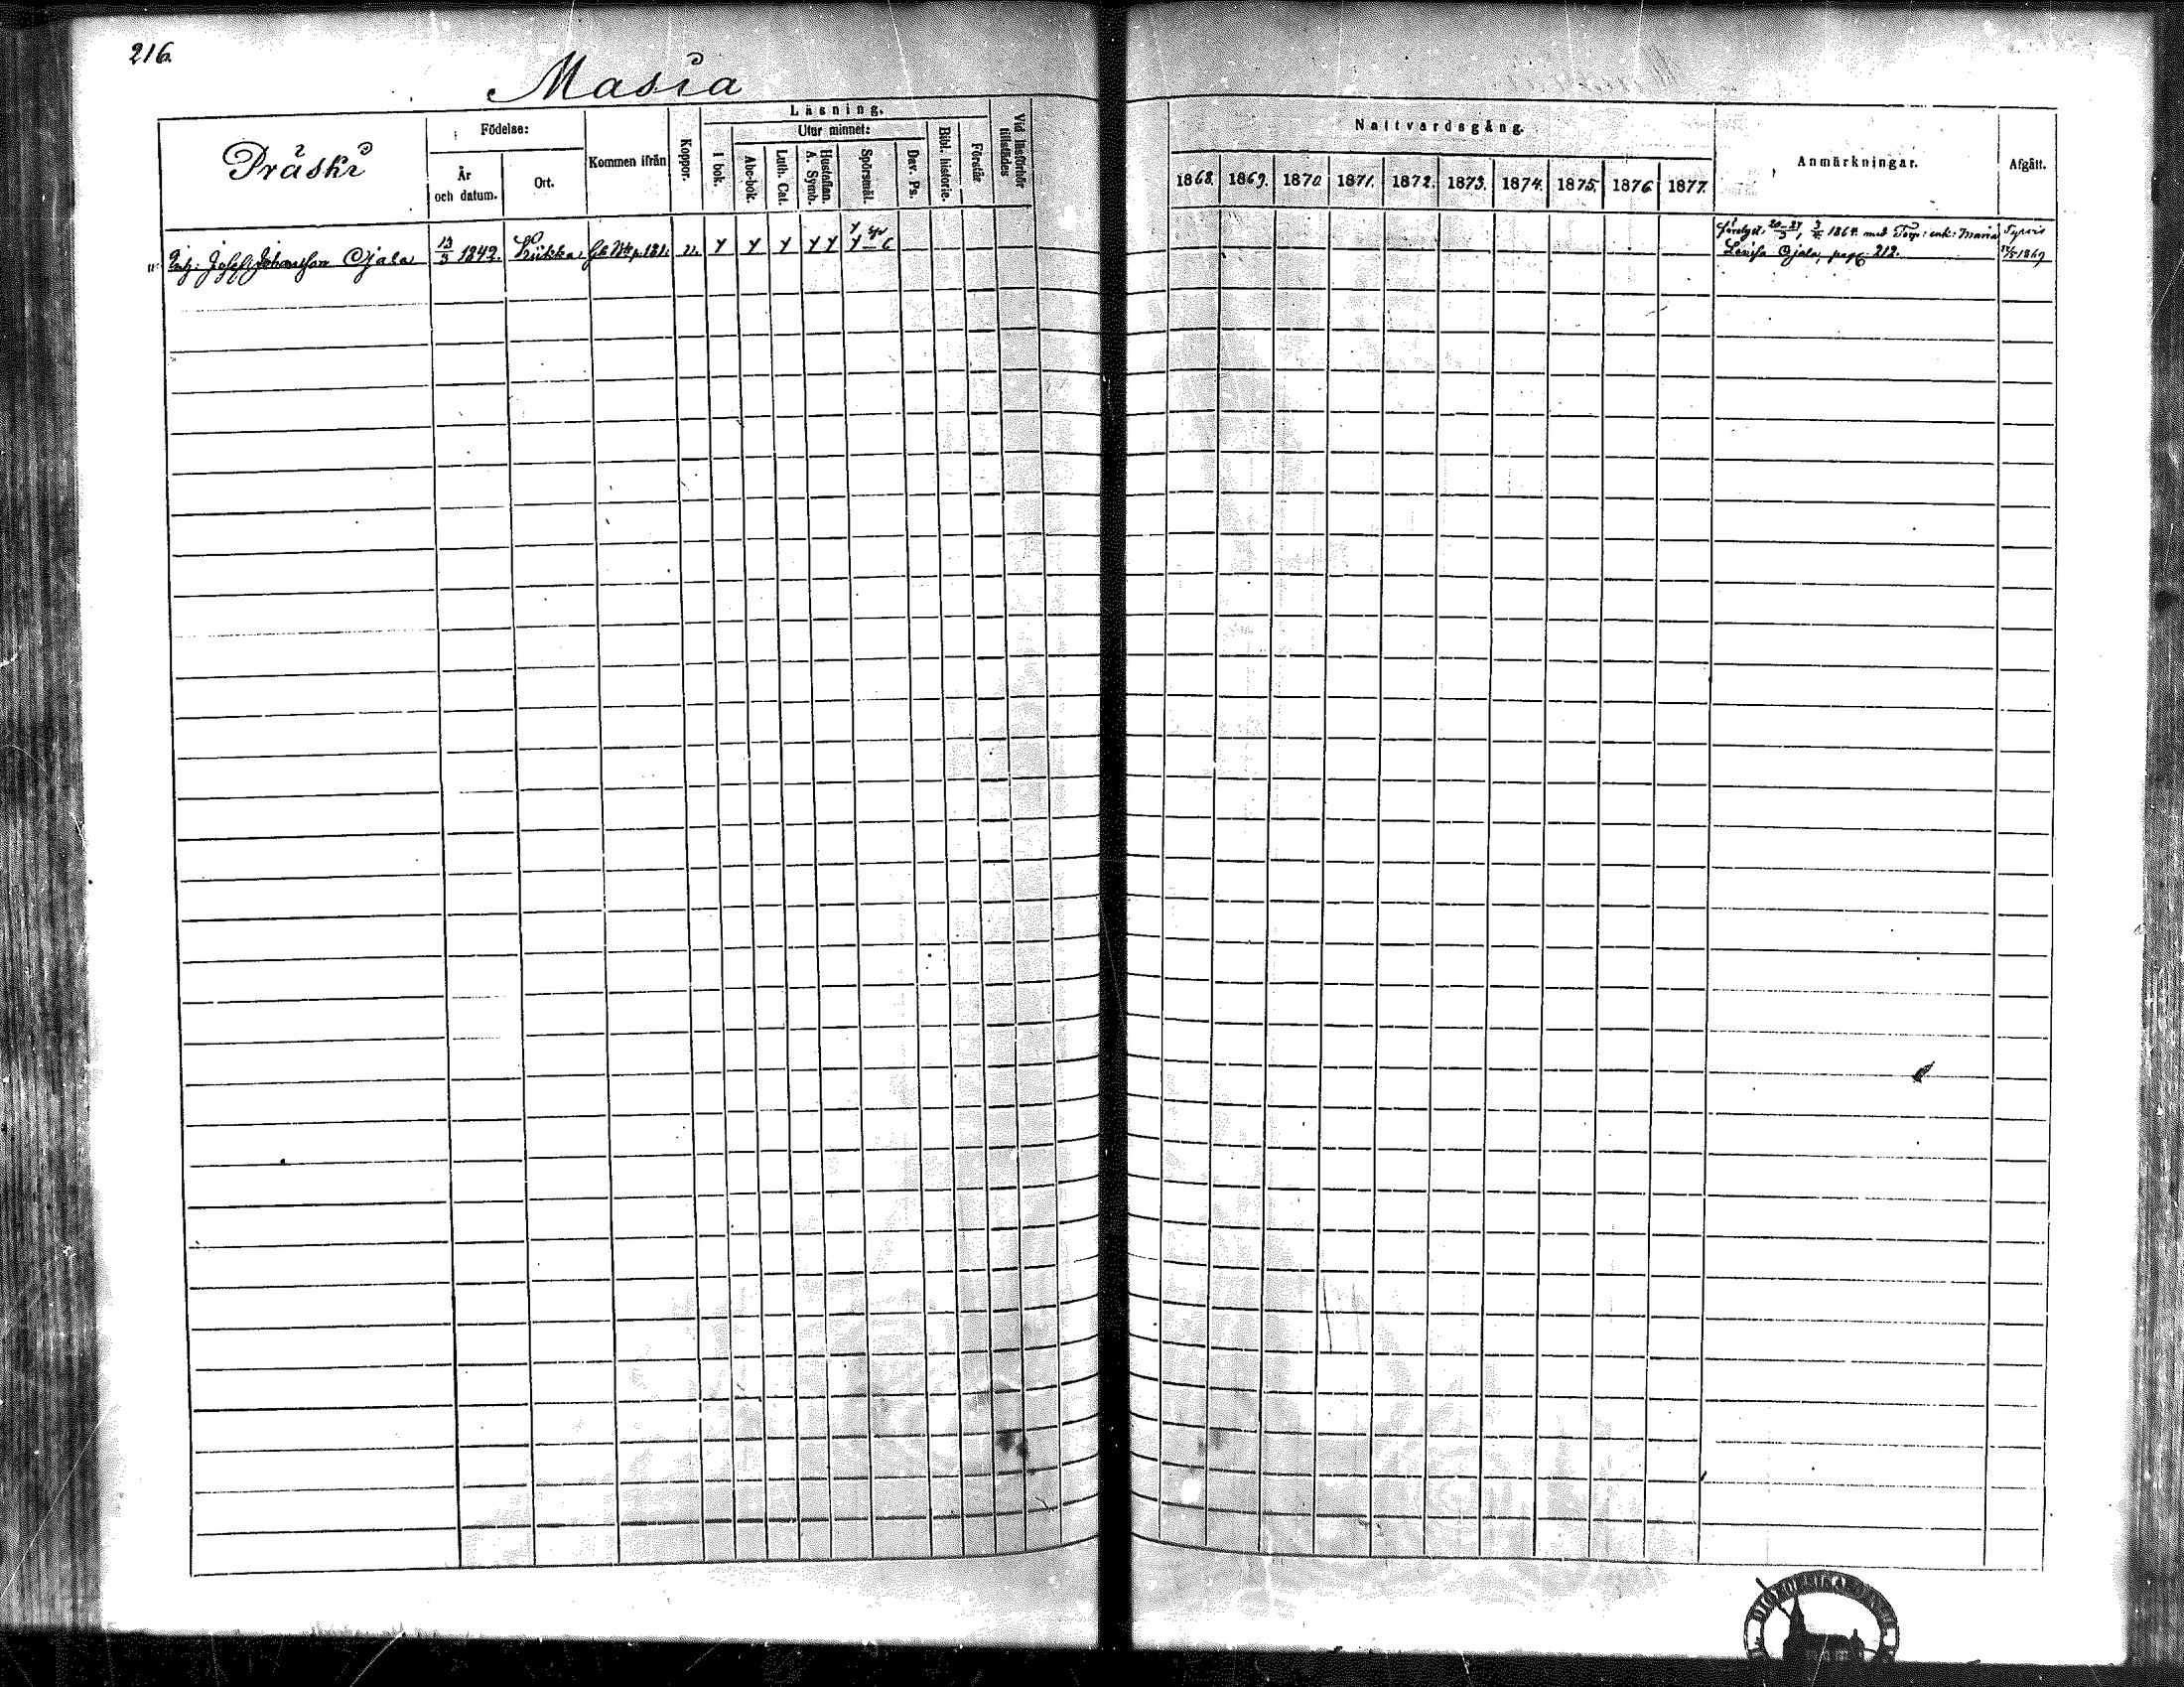 216.
Masia
Präski
Födelse:
År
och datum.
Ort.
Kommen ifrån
Koppor.
Läsning.
I bok.
Utur minnet:
Abc-bok.
Luth. Cat.
Hustaflan.
A. Symb.
Spörsmål.
Dav. Ps.
Bibl. historie.
Förstår
Vid läsförhör
tillstädes
Nattvardsgång.
1868. 1869. 1870 1871. 1872. 1873. 1874. 1875. 1876 1877.
Anmärkningar.
Afgått.
Josef Johansson Ojala 13/3 1842. p. 181. v.
1869. med Torp: enk: Maria
Lovisa Ojala, pag. 212.
1869